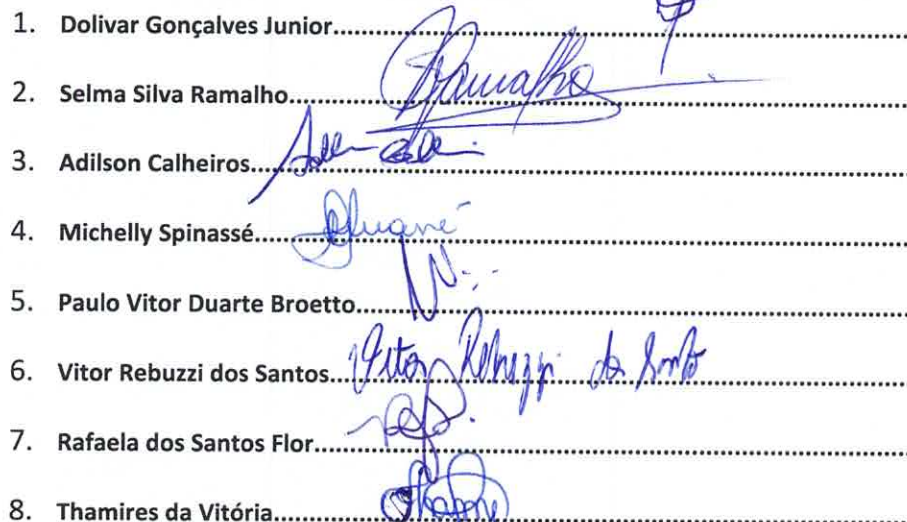 1. Dolivar Gonçalves Junior
2. Selma Silva Ramalho Ramalho
3. Adilson Calheiros
4. Michelly Spinassé
5. Paulo Vitor Duarte Broetto
6. Vitor Rebuzzi dos Santos Vitor Rebuzzi do Santo
7. Rafaela dos Santos Flor
8. Thamires da Vitória